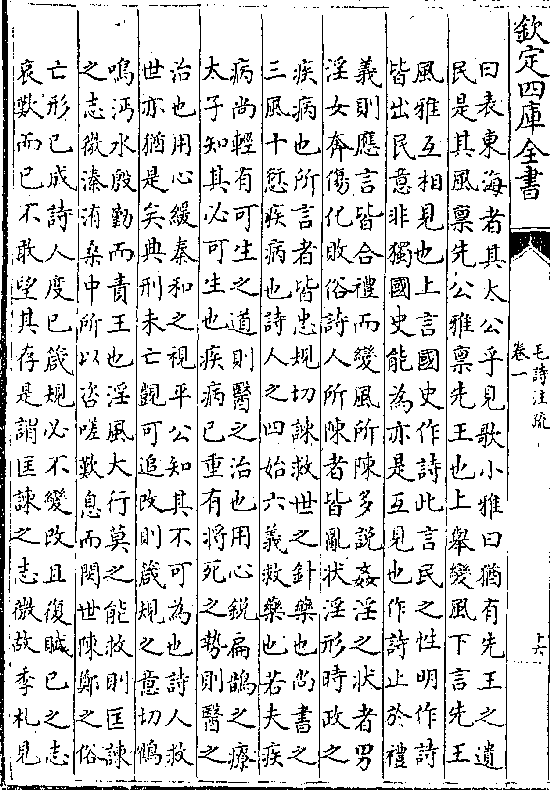 欽定四庫全書
毛詩注疏
卷一
十六
曰表東海者其大公乎見歌小雅曰猶有先王之遺
民是其風稟先公雅稟先王也上舉變風下言先王
風雅互相見也上言國史作詩此言民之性明作詩
皆出民意非獨國史能為亦是互見也作詩止於禮
義則應言皆合禮而變風所陳多說姦淫之狀者男
淫女奔傷化敗俗詩人所陳者皆亂狀淫形時政之
疾病也所言者皆忠規切諫救世之針藥也尚書之
三風十愆疾病也詩人之四始六義救藥也若夫疾
病尚輕有可生之道則醫之治也用心銳扁鵲之療
太子知其必可生也疾病已重有將死之勢則醫之
治也用心緩秦和之視平公知其不可為也詩人救
世亦猶是矣典刑未亡覬可追改則箴規之意切鶴
鳴沔水殷勤而責王也淫風大行莫之能救則匡諫
之志微溱洧桑中所以咨嗟歎息而閔世陳鄭之俗
亡形已成詩人度已箴規必不變改且復賦已之志
哀歎而已不敢望其存是謂匡諫之志微故季札見